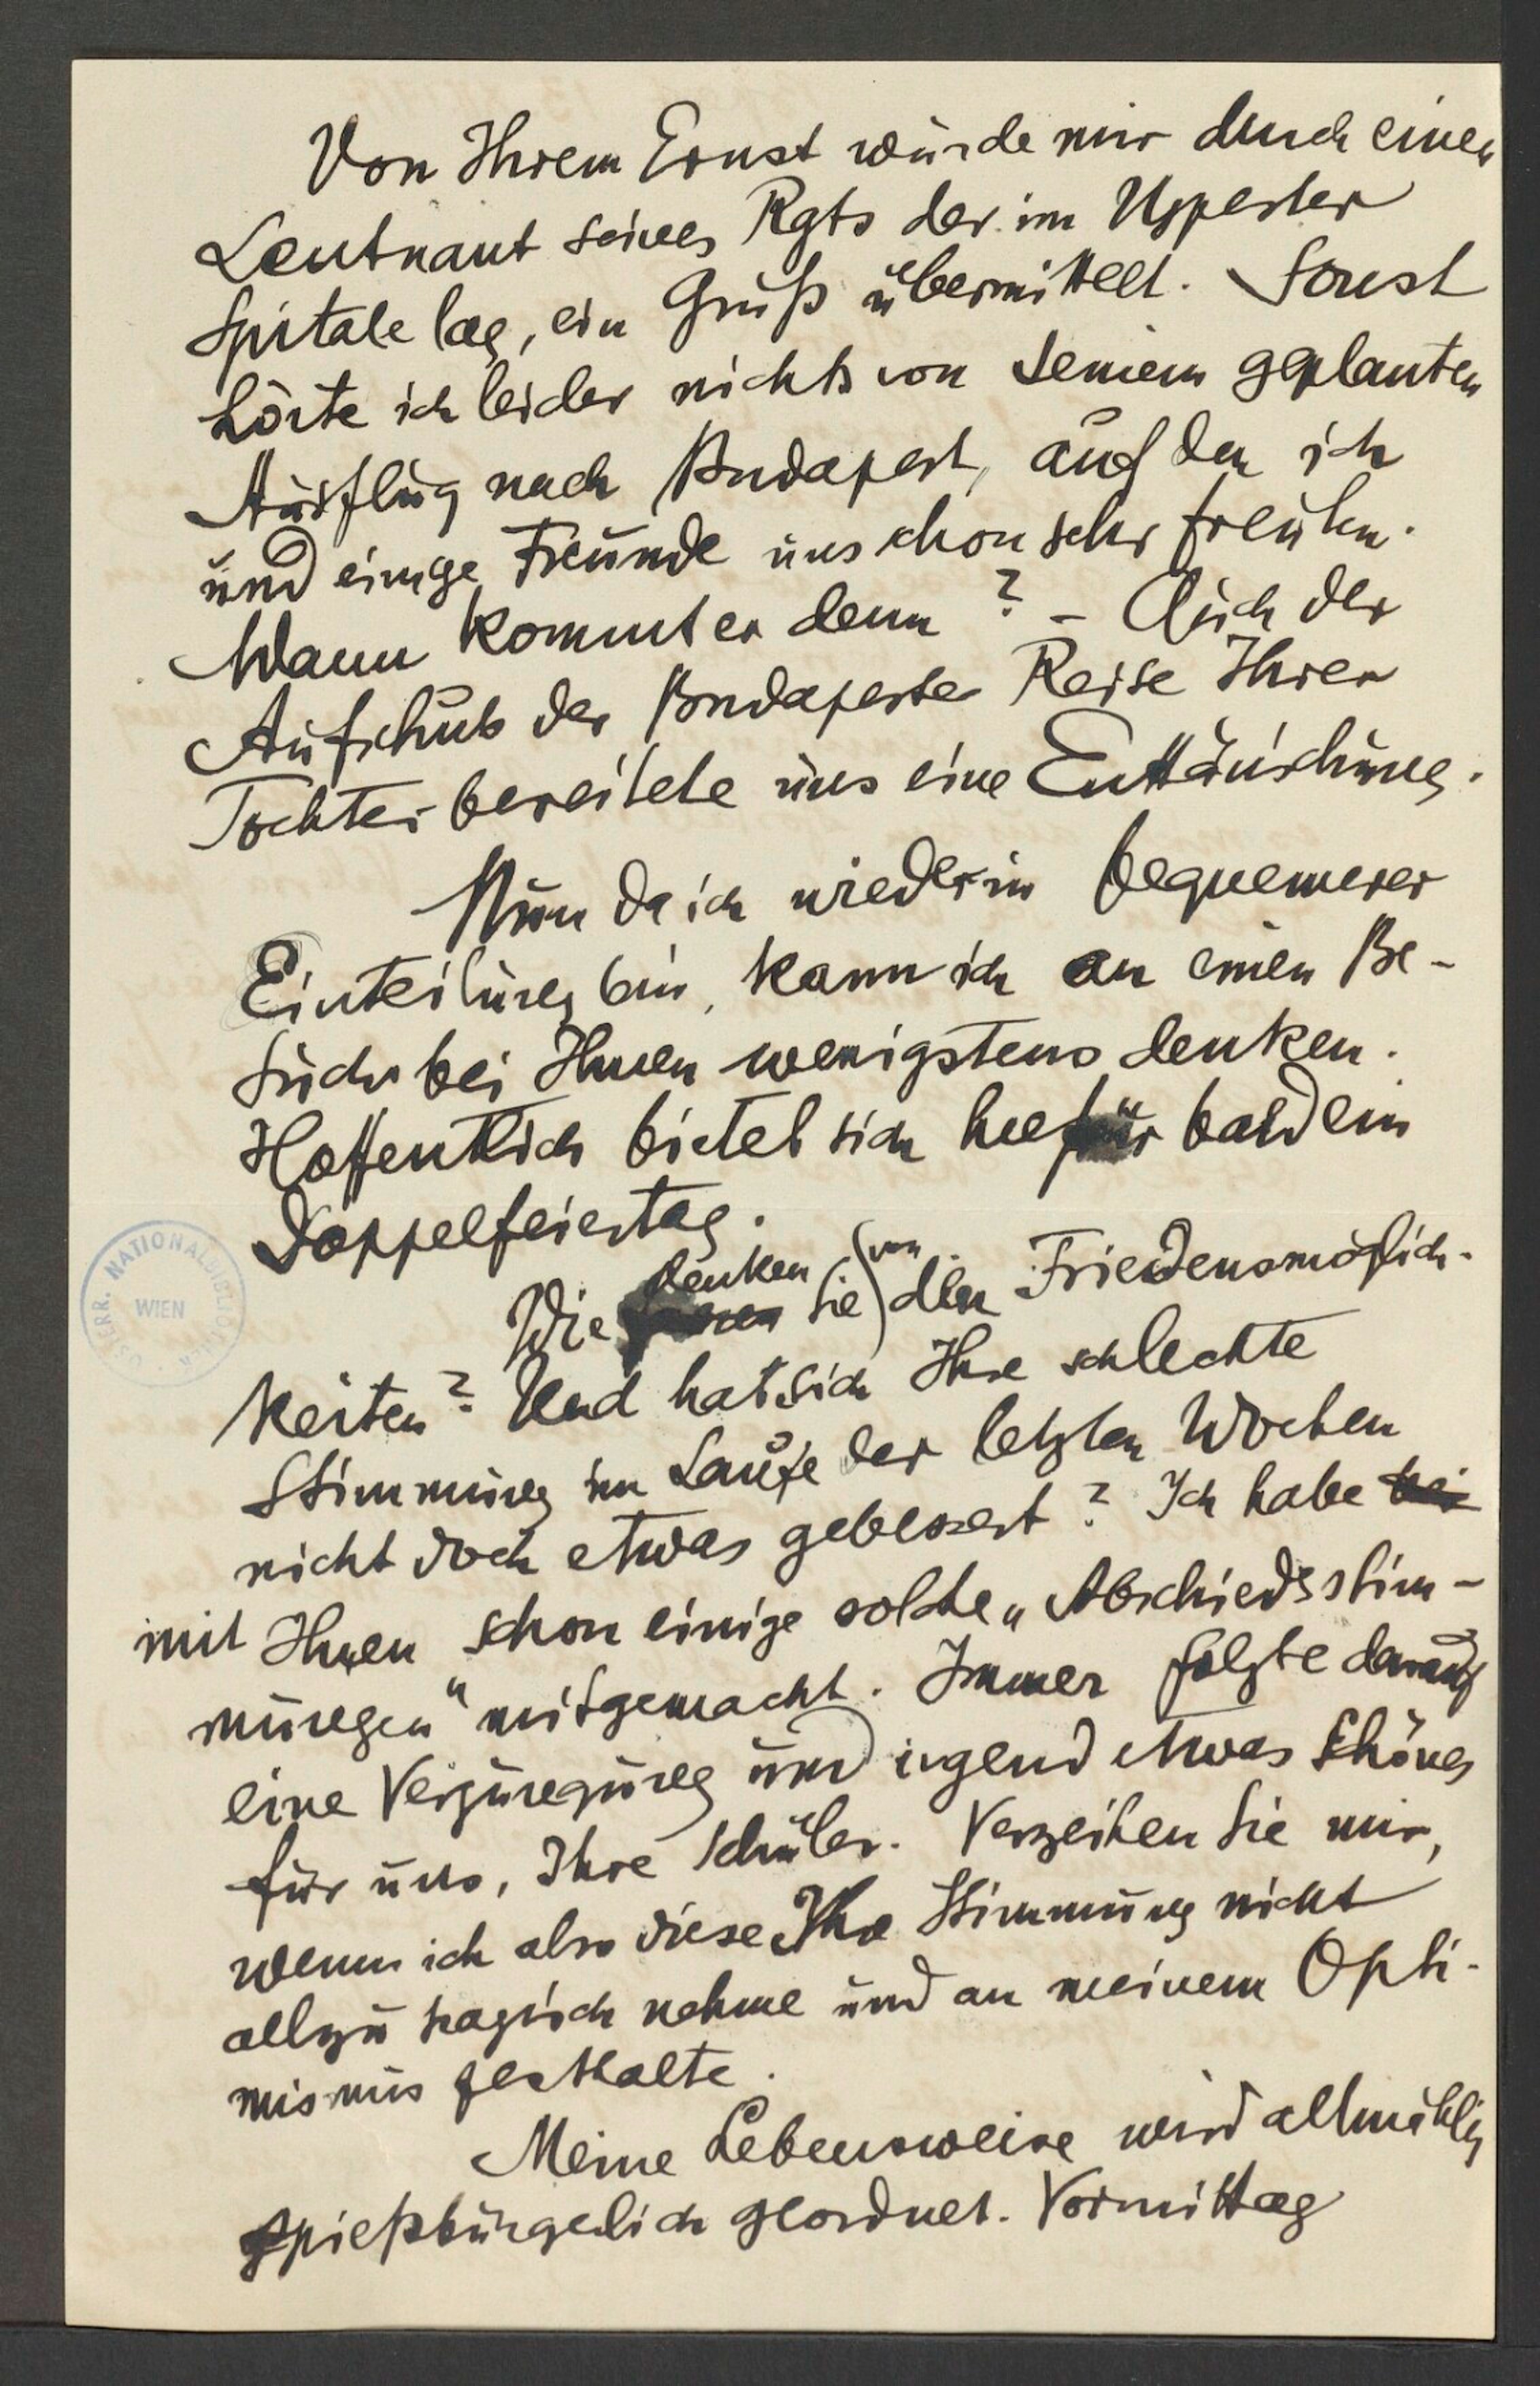 Von Ihrem Ernst wurde mir durch einen
Leutnant seines Rgts der im Ujpester
Spitale lag, ein Gruß übermittelt. Sonst
hörte ich leider nichts von seinem geplanten
Ausflug nach Budapest, auf den ich
und einige Freunde uns schon sehr freuten.
Wann kommt er denn? – Auch der
Aufschub der Budapester Reise Ihrer
Tochter bereitete uns eine Enttäuschung.
Nun da ich wieder in bequemerer
Einteilung bin, kann ich an einen Be-
such bei Ihnen wenigstens denken.
Hoffentlich bietet sich hiefür bald ein
Doppelfeiertag.
Wie denken Sie von den Friedensmöglich-
keiten? Und hat sich Ihre schlechte
Stimmung im Laufe der letzten Wochen
nicht doch etwas gebessert? Ich habe bei
mit Ihnen schon einige solche „Abschiedsstim-
mungen" mitgemacht. Immer folgte darauf
eine Verjüngung und irgend etwas Schönes
für uns, Ihre Schüler. Verzeihen Sie mir,
wenn ich also diese Ihre Stimmung nicht
allzu tragisch nehme und an meinem Opti-
mismus festhalte.
Meine Lebensweise wird allmählig
spießbürgerlich geordnet. Vormittag
ÖSTERR. NATIONALBIBLIOTHEK
WIEN